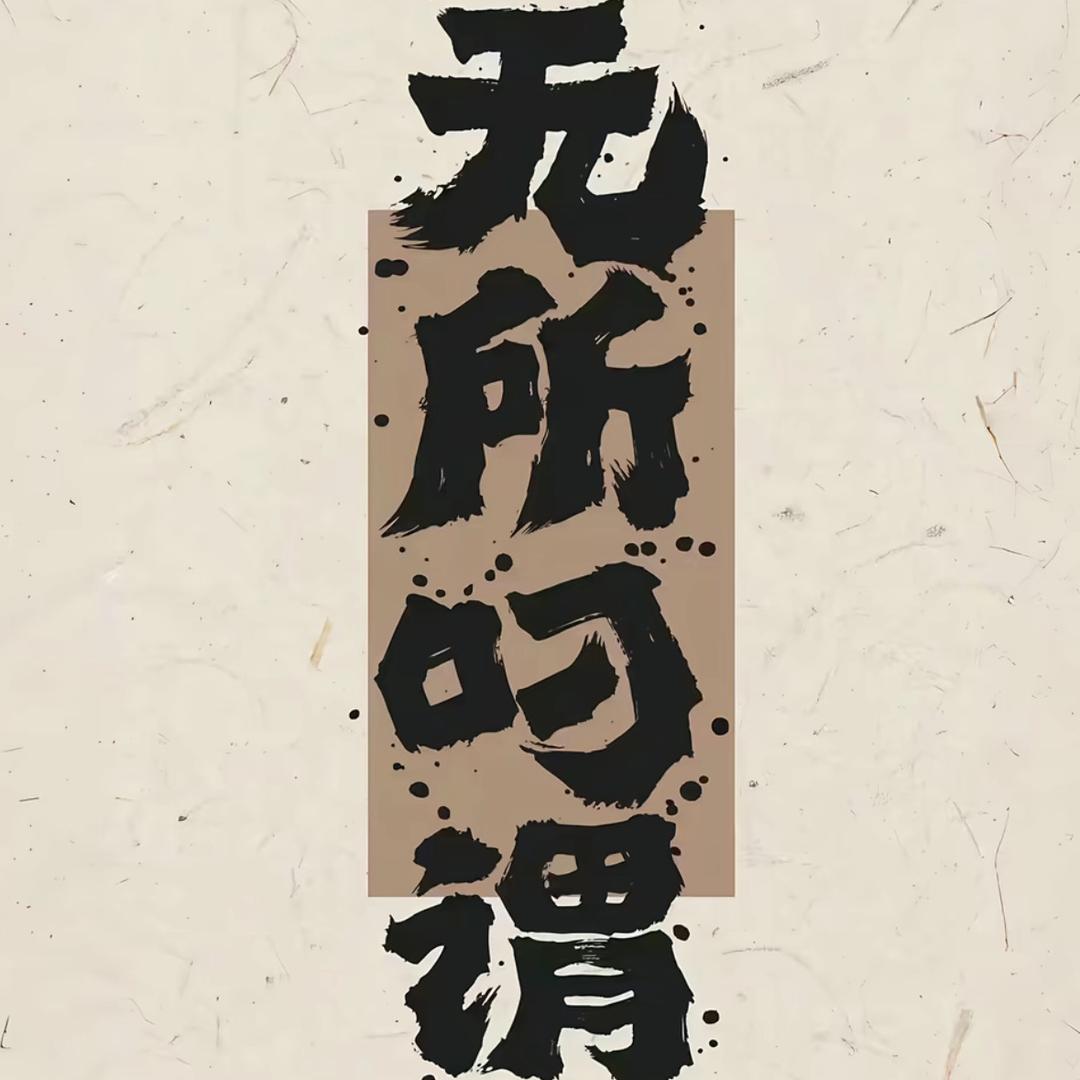 无所叼谓